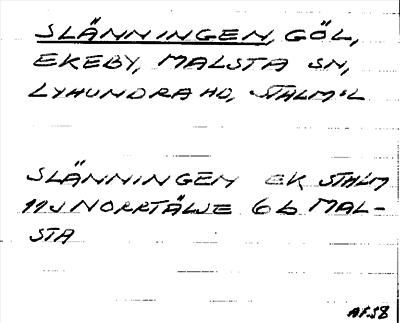 SLÄNNINGEN, GÖL,
EKEBY, MALSTA SN,
LYHUNDRA HD, STHLM:L
SLÄNNINGEN EK STHLM
11J NORRTÄLJE 6b MAL-
STA
AF58